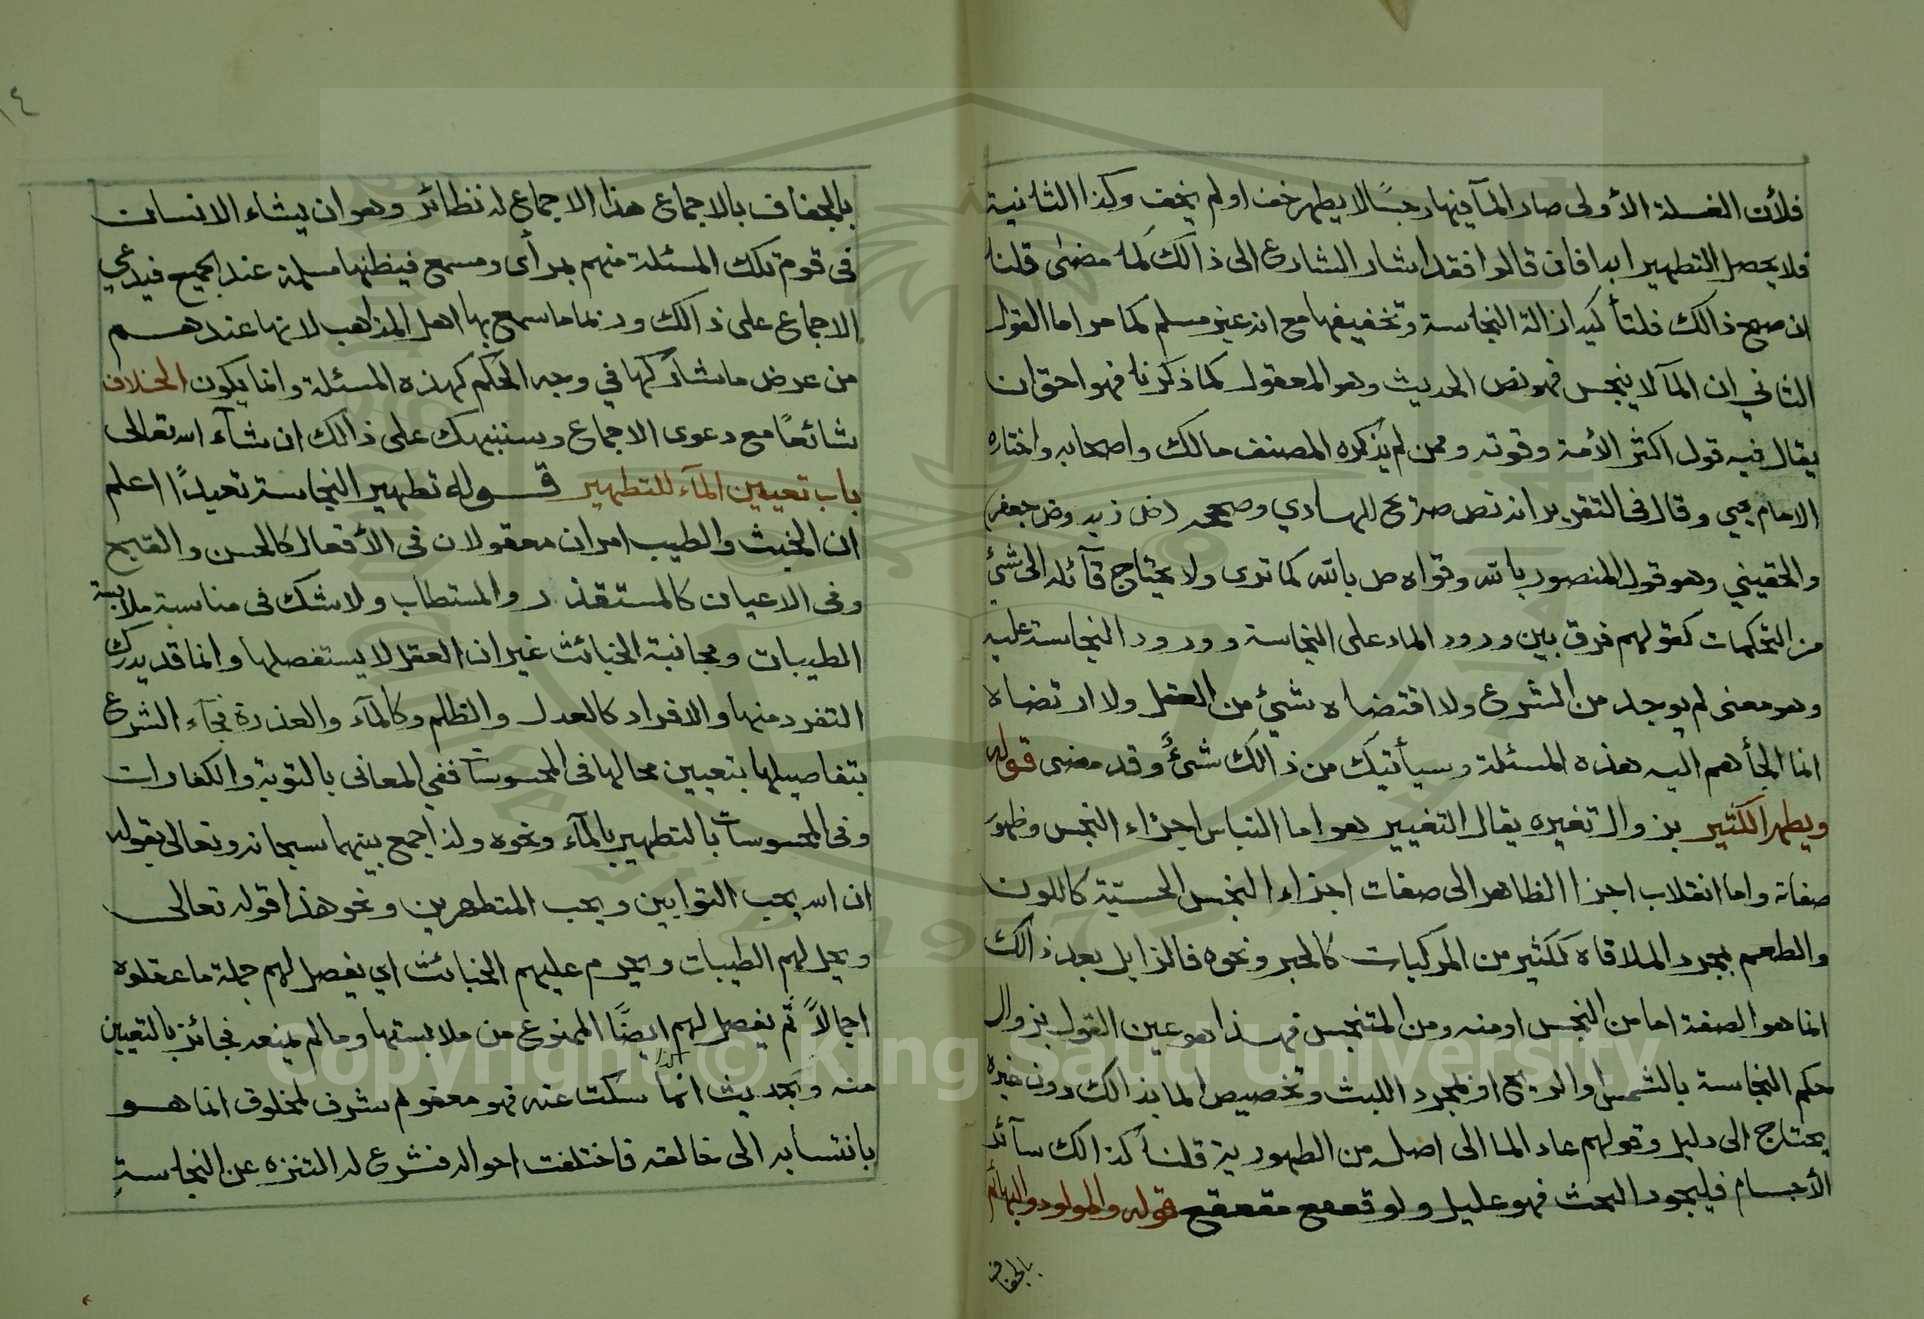 فلأن الغسلة الأولى صار المآ فيها رجسًا لا يطهر خف او لم يخف وكذا الثانية
فلا يحصل التطهير ابدا فان قالوا فقد اشار الشارع الى ذالك كما مضى قلنا
ان صح ذالك فلتأكيد ازالة النجاسة وتخفيفها مع انه غير مسلم كما مر اما القول
الثاني ان المآ لا ينجس فهو نص الحديث وهو المعقول كما ذكرنا فهو احق ان
يقال فيه قول اكثر الأمة وقوته وممن لم يذكره المصنف مالك واصحابه واختاره
الامام يحيى وقال في التقرير انه نص صريح للهادي وصححه اخل زيد وض جعفر
والحقيني وهو قول المنصور بالله وقواه ص بالله كما ترى ولا يحتاج قآئله الى شئ
من التحكمات كقولهم فرق بين ورود الماء على النجاسة وورود النجاسة عليه
وهو معنى لم يوجد من الشرع ولا اقتضاه شيئ من العقل ولا ارتضاه
انما الجأهم اليه هذه المسئلة وسيأتيك من ذالك شئ وقد مضى قوله
ويطهر الكثير بزوال تغيره يقال التغيير هو اما التباس اجزاء النجس وظهور
صفاته واما انقلاب اجزا الظاهر الى صفات اجزاء النجس الحسيّة كاللون
والطعم بمجرد الملاقاة ككثير من المركبات كالحبر ونحوه فالزايل بعد ذالك
انما هو الصفة اما من النجس او منه ومن المتنجس فهذا هو عين القول بزوال
حكم النجاسة بالشمس او الريح او لمجرد اللبث وتخصيص الما بذالك دون غيره
يحتاج الى دليل وقولهم عاد الما الى اصله من الطهورية قلنا كذالك سآئر
الأجسام فليجود البحث فهو عليل ولو قعقع مقعقع قوله والمولود والبهائم
بالجفاف
١٤
بالجفاف بالاجماع هذا الاجماع له نظائر وهو ان ينشاء الانسان
في قوم تلك المسئلة منهم بمرأى ومسمع فيظنها مسلمة عند الجميع فيدعي
الاجماع على ذالك وربما ما سمع بها اهل المذاهب لانها عندهم
من عرض ما شاركها في وجه الحكم كهذه المسئلة وانما يكون الخلاف
شائعًا مع دعوى الاجماع وسننبهك على ذالك ان شآء الله تعالى
باب تعيين المآء للتطهير قوله تطهير النجاسة تعبدًا اعلم
ان الخبيث والطيب امران معقولان في الأفعال كالحسن والقبيح
وفي الاعيان كالمستقذر والمستطاب ولا شك في مناسبة ملابسة
الطيبات ومجانبة الخبائث غير ان العقل لا يستفصلها وانما قد يدرك
التفرد منها والافراد كالعدل والظلم وكالمآء والعذرة فجآء الشرع
بتفاصيلها بتعيين محالها في المحسوسات ففي المعاني بالتوبة والكفارات
وفي المحسوسات بالتطهير بالمآء ونحوه ولذا جمع بينهما سبحانه وتعالى بقوله
ان الله يحب التوابين ويحب المتطهرين ونحو هذا قوله تعالى
ويحل لهم الطيبات ويحرم عليهم الخبائث اي يفصل لهم جملة ما عقلوه
اجمالاً ثم يفصل لهم ايضًا الممنوع من ملابستها وما لم يمنعه فجائز بالتعيين
منه وبحديث انما سكت عنه فهو معفو ثم شرف المخلوق انما هو
بانتسابه الى خالقه فاختلفت احواله فشرع له التنزه عن النجاسة